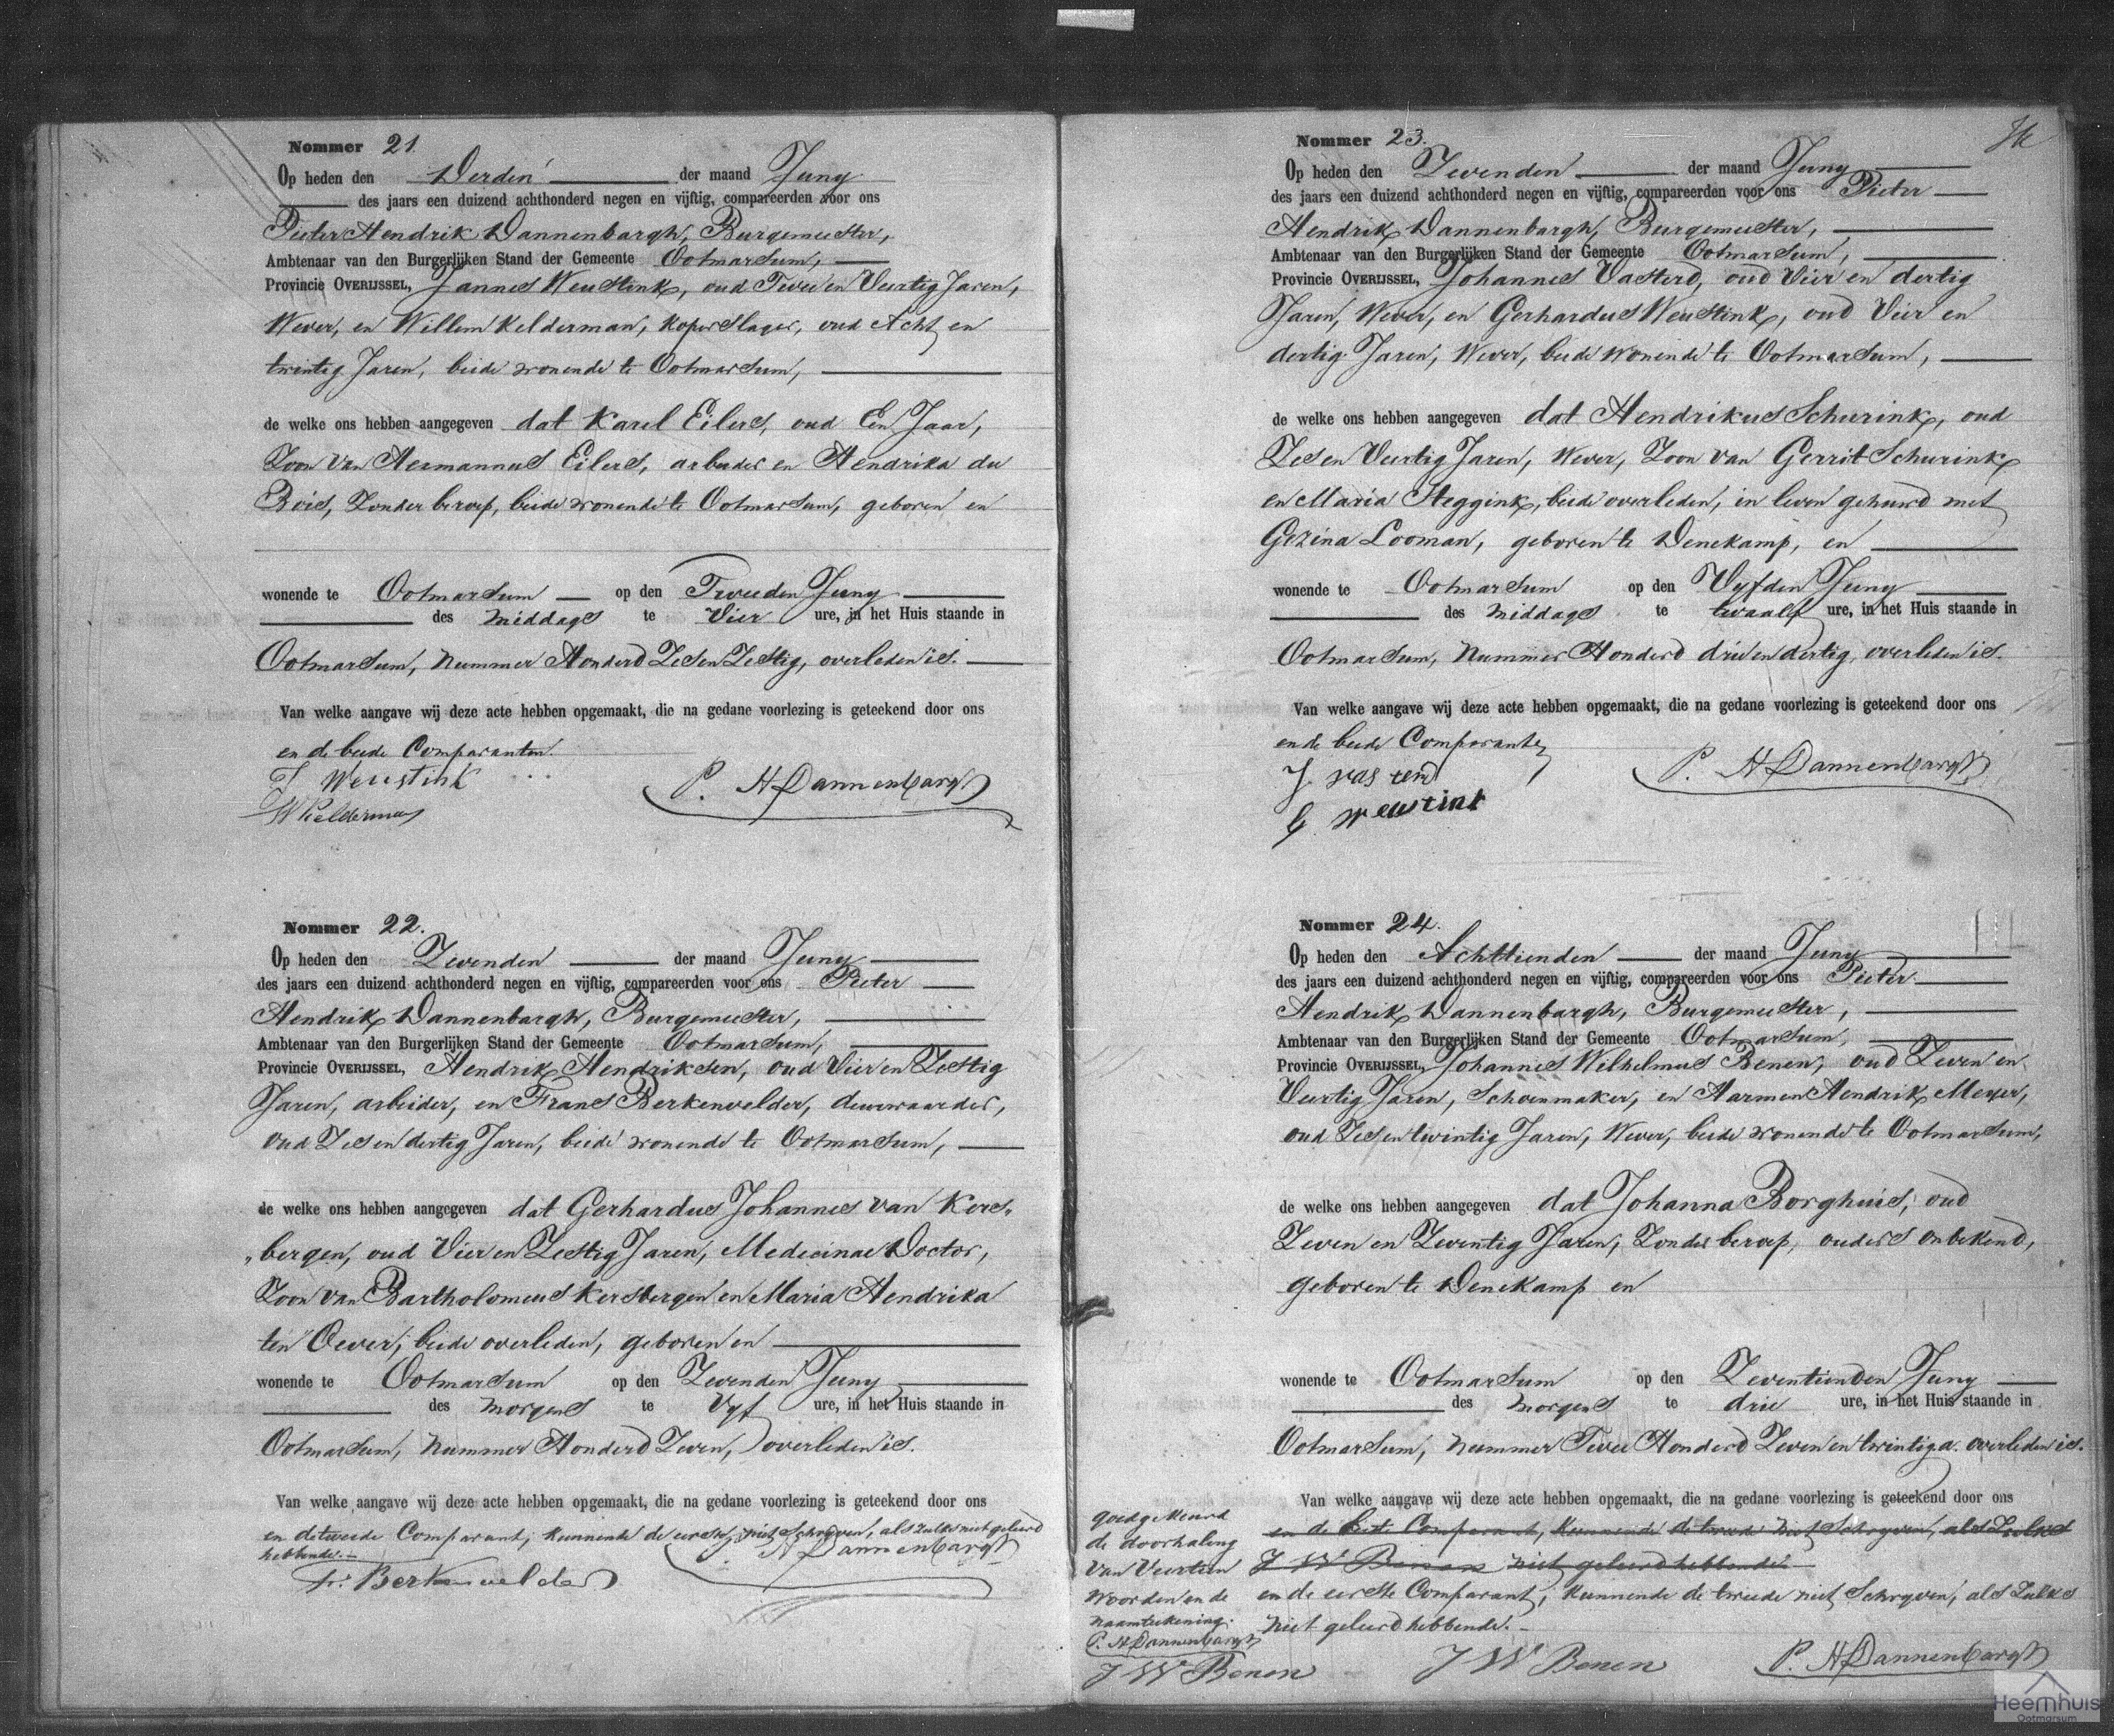 Nommer 21.
Op heden den Derden der maand Juny
des jaars een duizend achthonderd negen en vijftig, compareerden voor ons
Pieter Hendrik Dannenbargh, Burgemeester,
Ambtenaar van den Burgerlijken Stand der Gemeente Ootmarsum,
Provincie OVERIJSSEL, Jannes Weustink, oud Twee en Veertig Jaren,
Wever, en Willem Kelderman, koperslager, oud Acht en
twintig Jaren, beide wonende te Ootmarsum,
de welke ons hebben aangegeven dat Karel Eilers, oud Een Jaar,
Zoon van Hermannus Eilers, arbeider en Hendrika du
Bois, Zonder beroep, beide wonende te Ootmarsum, geboren en
wonende te Ootmarsum op den Tweeden Juny
des middags te Vier ure, in het Huis staande in
Ootmarsum, nummer Honderd Zes en Zestig, overleden is.
Van welke aangave wij deze acte hebben opgemaakt, die na gedane voorlezing is geteekend door ons
en de beide Comparanten.
J Weustink
P. H Dannenbargh
W Kelderman
Nommer 22.
Op heden den Zevenden der maand Juny
des jaars een duizend achthonderd negen en vijftig, compareerden voor ons Pieter
Hendrik Dannenbargh, Burgemeester,
Ambtenaar van den Burgerlijken Stand der Gemeente Ootmarsum,
Provincie OVERIJSSEL, Hendrik Hendriksen, oud Vier en Zestig
Jaren, arbeider, en Frans Berkenvelder, deurwaarder,
oud Zes en dertig Jaren, beide wonende te Ootmarsum,
de welke ons hebben aangegeven dat Gerhardus Johannes van Kers-
"bergen, oud Vier en Zestig Jaren, Medicinae Doctor,
Zoon van Bartholomeus Kersbergen en Maria Hendrika
ten Oever, beide overleden, geboren en
wonende te Ootmarsum op den Zevenden Juny
des morgens te Vyf ure, in het Huis staande in
Ootmarsum, nummer Honderd Zeven, overleden is.
Van welke aangave wij deze acte hebben opgemaakt, die na gedane voorlezing is geteekend door ons
en de tweede Comparant, kunnende de eerste niet Schryven, als zulks niet geleerd
hebbende.-
P. H Dannenbargh
Fr: Berkenvelder
Nommer 23.
Op heden den Zevenden der maand Juny
des jaars een duizend achthonderd negen en vijftig, compareerden voor ons Pieter
Hendrik Dannenbargh, Burgemeester,
Ambtenaar van den Burgerlijken Stand der Gemeente Ootmarsum,
Provincie OVERIJSSEL, Johannes Vasterd, oud Vier en dertig
Jaren, Wever, en Gerhardus Weustink, oud Vier en
dertig Jaren, Wever, beide wonende te Ootmarsum,
de welke ons hebben aangegeven dat Hendrikus Schurink, oud
Zes en Veertig Jaren, Wever, Zoon van Gerrit Schurink
en Maria Heggink, beide overleden, in leven gehuwd met
Gezina Looman, geboren te Denekamp, en
wonende te Ootmarsum op den Vyfden Juny
des middags te twaalf ure, in het Huis staande in
Ootmarsum, Nummer Honderd drie en dertig, overleden is.
Van welke aangave wij deze acte hebben opgemaakt, die na gedane voorlezing is geteekend door ons
en de beide Comparanten
J. vasterd
P. H Dannenbargh
G weustink
Nommer 24.
Op heden den Achttienden der maand Juny
des jaars een duizend achthonderd negen en vijftig, compareerden voor ons Pieter
Hendrik Dannenbargh, Burgemeester,
Ambtenaar van den Burgerlijken Stand der Gemeente Ootmarsum,
Provincie OVERIJSSEL, Johannes Wilhelmus Benen, oud Zeven en
Veertig Jaren, Schoenmaker, en Harmen Hendrik Meyer,
oud Zes en twintig Jaren, Wever, beide wonende te Ootmarsum,
de welke ons hebben aangegeven dat Johanna Borghuis, oud
Zeven en Zeventig Jaren, Zonder beroep, ouders onbekend,
geboren te Denekamp en
wonende te Ootmarsum op den Zeventienden Juny
des morgens te drie ure, in het Huis staande in
Ootmarsum, nummer Twee Honderd Zeven en twintig a. overleden is.
Van welke aangave wij deze acte hebben opgemaakt, die na gedane voorlezing is geteekend door ons
en de Comparant, kunnende de tweede niet Schryven, als Zulks
J W Benen niet geleerd hebbende.-
en de eerste Comparant, kunnende de tweede niet Schryven, als Zulks
niet geleerd hebbende.-
goedgekeurd
de doorhaling
van Veertien
woorden en de
naamteekening.
P. H Dannenbargh
J W Benen
J W Benen
P. H Dannenbargh
Heemhuis
Ootmarsum